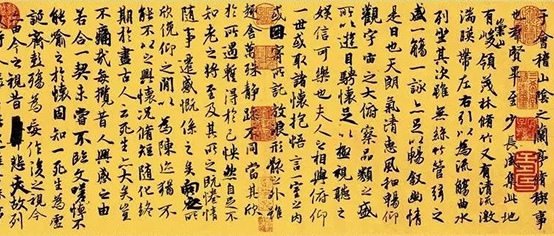 于會稽山陰之蘭亭脩稧事
也群賢畢至少長咸集此地
有崇山峻領茂林脩竹又有清流激
湍暎帶左右引以為流觴曲水
列坐其次雖無絲竹管弦之
盛一觴一詠亦足以暢敘幽情
是日也天朗氣清惠風和暢仰
觀宇宙之大俯察品類之盛
所以遊目騁懷足以極視聽之
娛信可樂也夫人之相與俯仰
一世或取諸懷抱悟言一室之內
或因寄所託放浪形骸之外雖
趣舍萬殊靜躁不同當其欣
於所遇暫得於己怏然自足不
知老之將至及其所之既惓情
隨事遷感慨係之矣向之所
欣俛仰之閒以為陳迹猶不
能不以之興懷況脩短隨化終
期於盡古人云死生亦大矣豈
不痛哉每攬昔人興感之由
若合一契未嘗不臨文嗟悼不
能喻之於懷固知一死生為虛
誕齊彭殤為妄作後之視今
亦由今之視昔悲夫故列